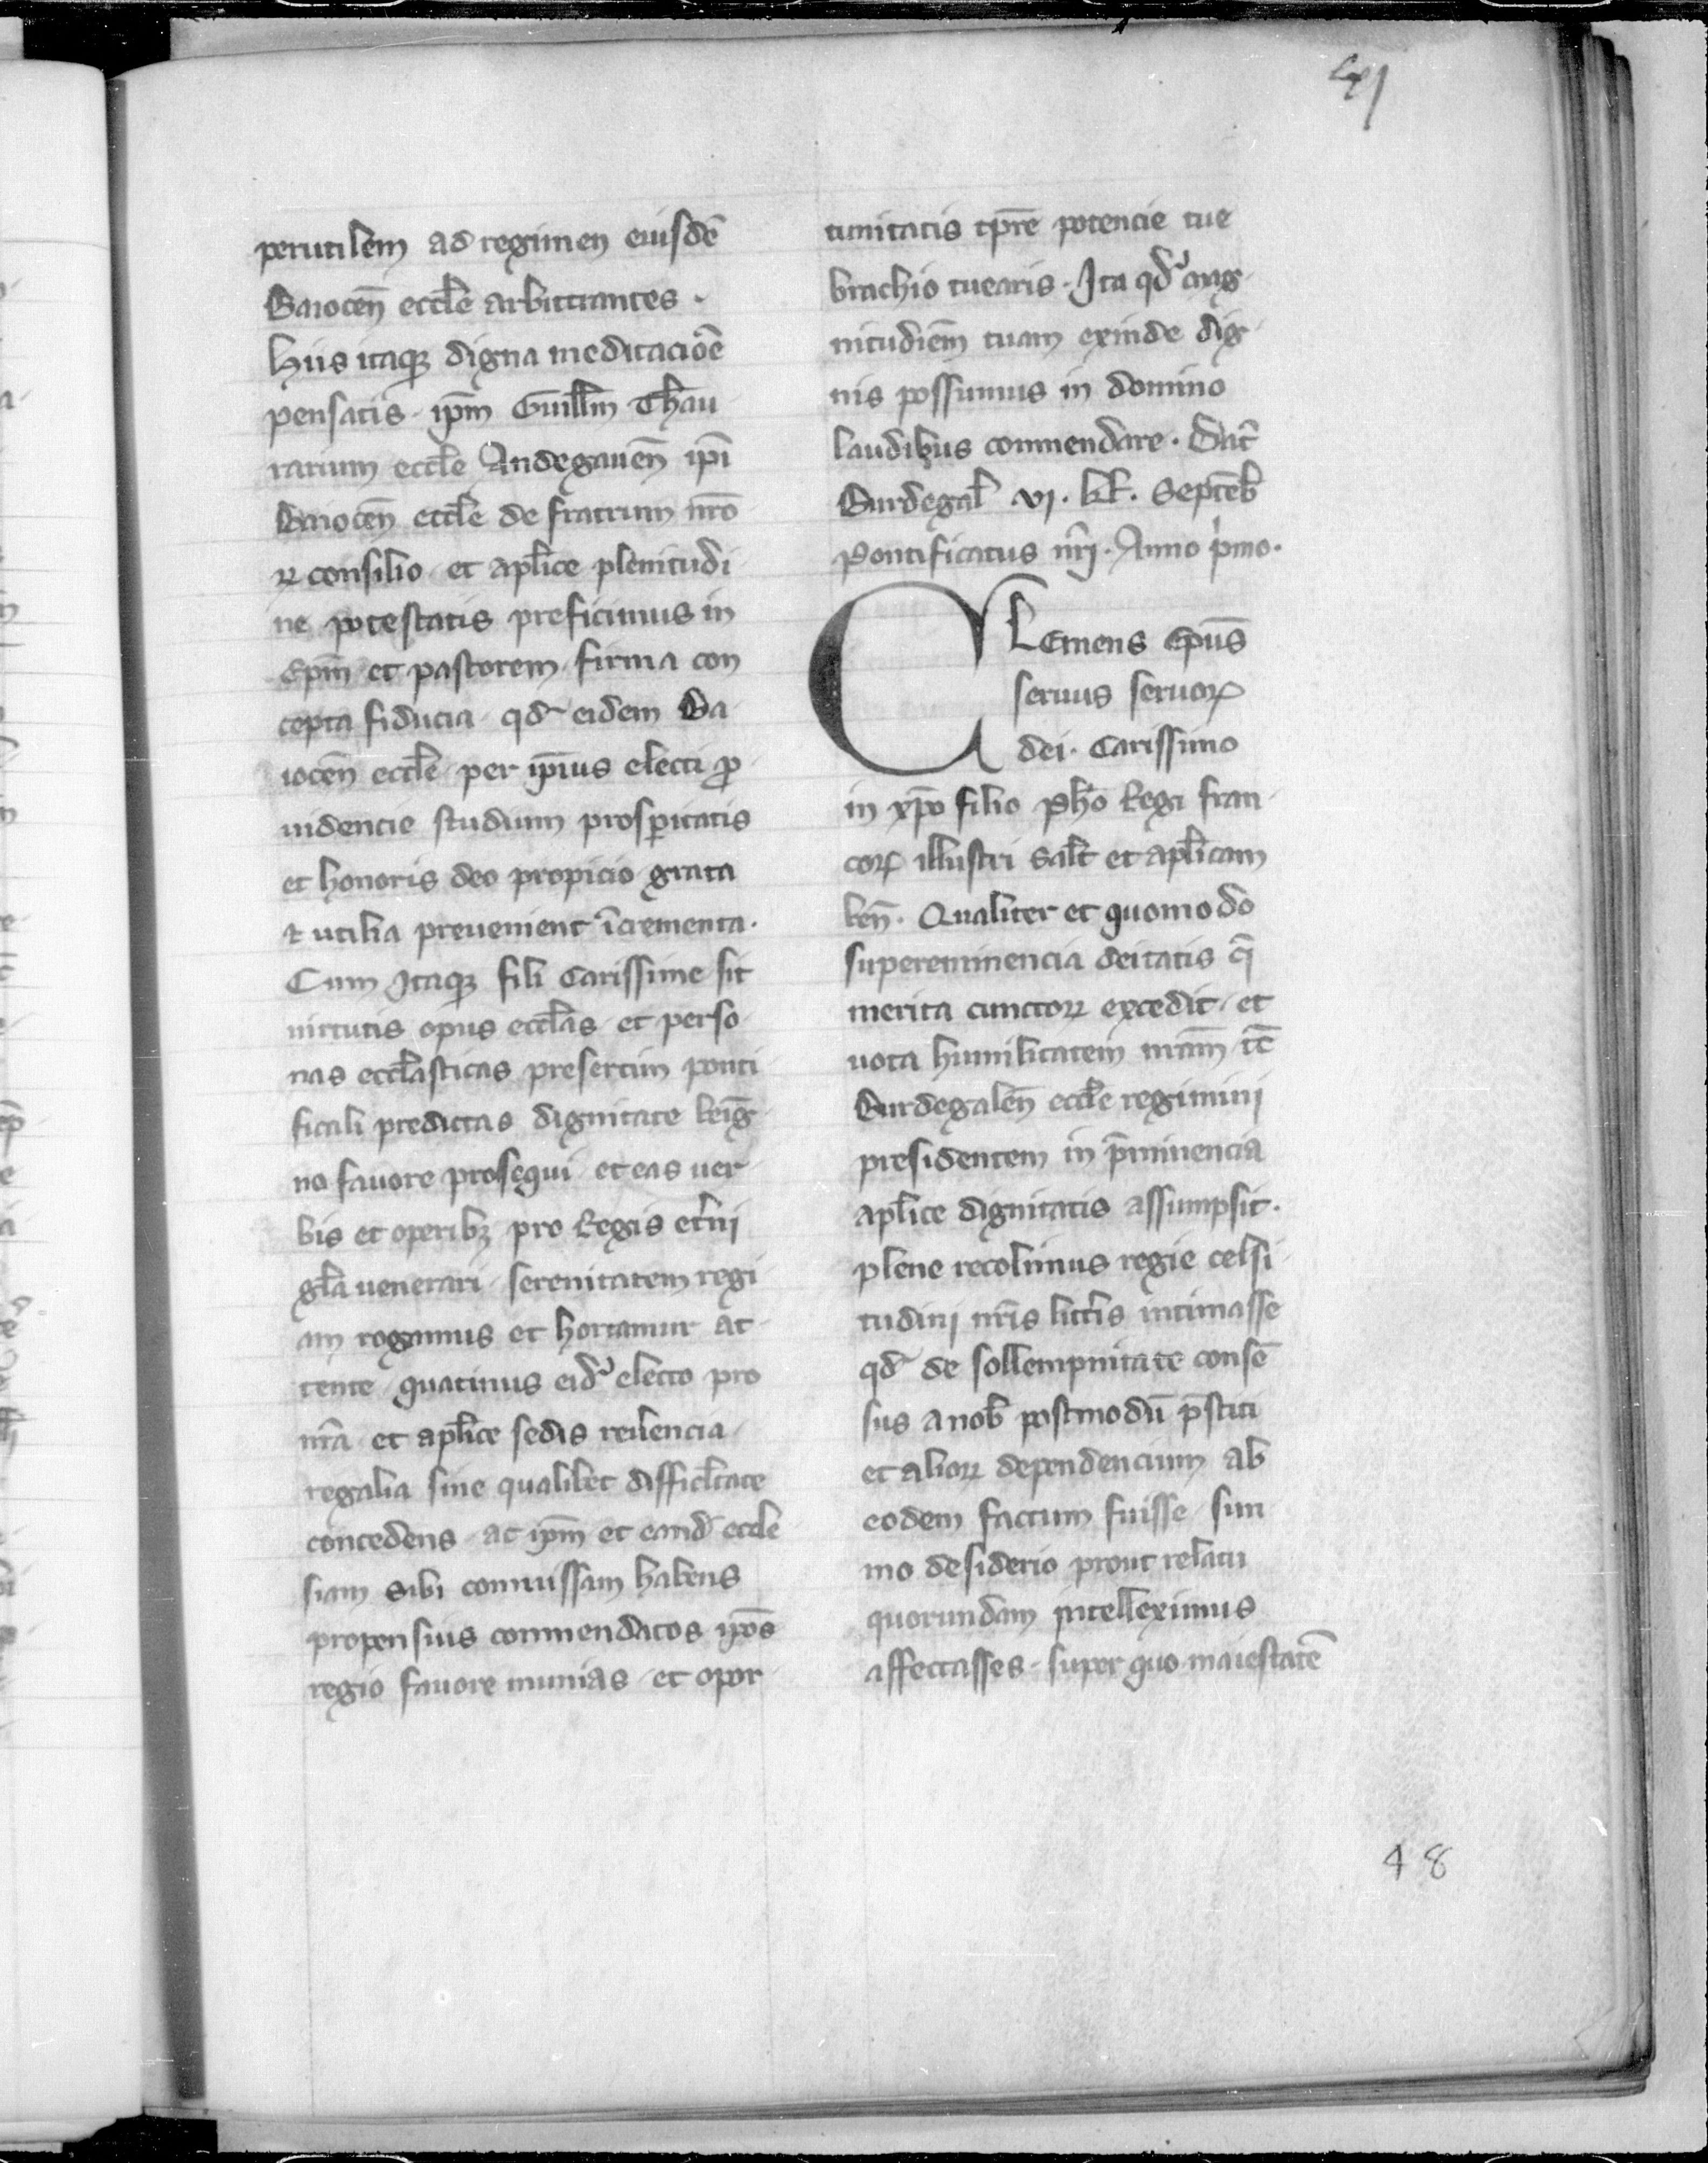 perutilem ad regimen eiusdē
Baiocen̄ eccl̄e arbitrantes .
hiis itaqꝫ digna meditaciōe
pensatis . ip̄m Guill̄m Thau
rarium eccl̄e Andegauen̄ ip̄i
Baiocen̄ eccl̄e de fratrum nr̄o
ꝝ consilio et apl̄ice plenitudi
ne potestatis preficimus in
Ep̄m et pastorem . firma con
cepta fiducia qd̄ eidem Ba
iocen̄ eccl̄e per ip̄ius electi ꝓ
uidencie studium prosꝑitatis
et honoris deo propicio grata
⁊ utilia preuenient īcrementa .
Cum Itaqꝫ fili Carissime sit
uirtutis opus eccl̄as et perso
nas eccl̄asticas presertim ponti
ficali predictas dignitate beīg
no fauore prosequi et eas uer
bis et operibꝫ pro Regis et̄ni
gl̄a venerari . serenitatem regi
am rogamus et hortamur at
tente quatinus eid̄ electo pro
nr̄a et apl̄ice sedis reu̾encia
regalia sine qualibet difficl̄tate
concedens . ac ip̄m et eand̄ eccle
siam sibi commissam habens
propensius commendatos ip̄os
regio fauore munias et opor
tunitatis tp̄re potencie tue
brachio tuearis . Ita qd̄ mag
nitudiēm tuam exinde dig
nis possumus in domino
laudibus commendare . Dat̄
Burdegal̄ vj . kl̄ . Septēb̄
Pontificatus nr̄j . Anno p̾mo .
CLemens Ep̄us
seruus seruoꝝ
dei . Carissimo
in xp̄o filio Ph̄o Regi fran
coꝝ illustri Sal̄t et apl̄icam
ben̄ . Qualiter et quomodo
supereminencia deitatis q̄
merita cunctoꝝ excedit et
uota humilitatem nr̄am tc̄
Burdegalen̄ eccl̄e regimini
presidentem in p̄minencia
apl̄ice dignitatis assumpsit .
plene recolimus regie celsi
tudinj nr̄is litt̄is intimasse
qd̄ de sollempnitate consē
sus a nob̄ postmodū p̄stiti
et alioꝝ dependencium ab
eodem factum fuisse sum
mo desiderio prout relatu
quorundam intelleximus
affectasses . super quo maiestatē
48